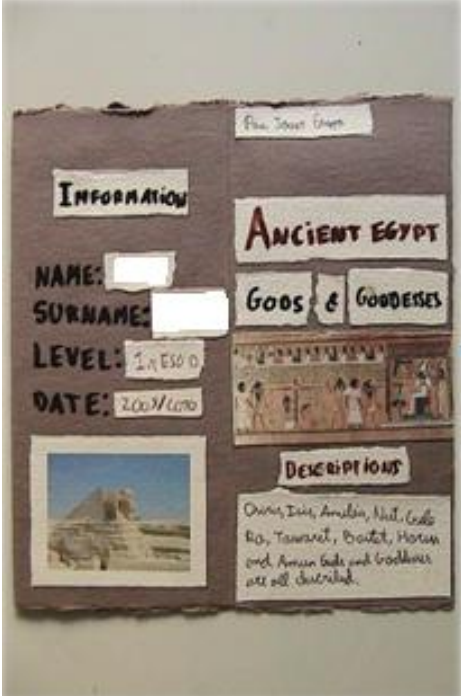 INFORMATION
NAME:
SURNAME:
LEVEL: 1r ESO D
DATE: 2009/2010
ANCIENT EGYPT
GODS & GODDESSES
DESCRIPTIONS
Osiris, Isis, Anubis, Nut, Geb
Ra, Tawaret, Bastet, Horus
and Amun Gods and Goddesses
are all described.